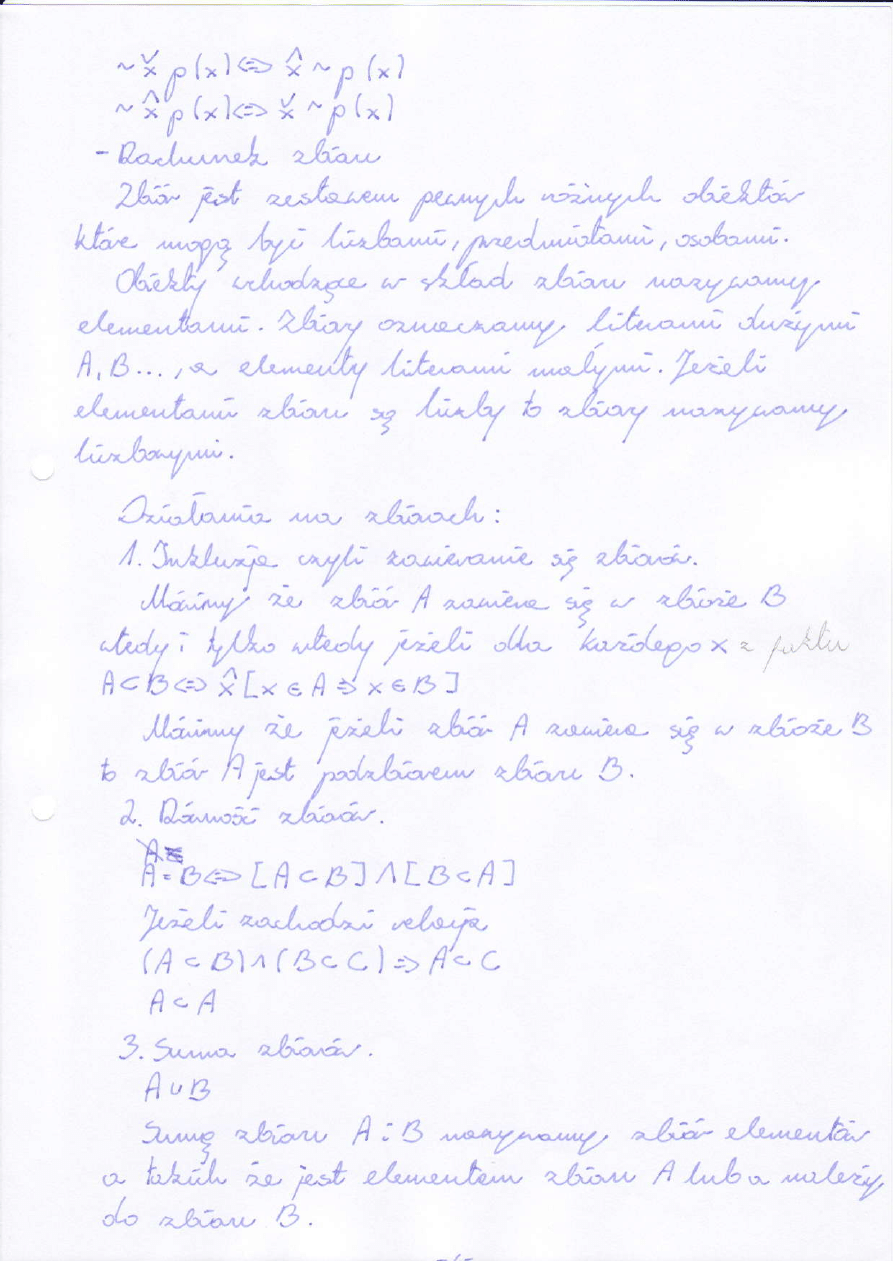 ~ ∨x p(x) <=> ∧x ~ p(x)
~ ∧x p(x) <=> ∨x ~ p(x)
- Rachunek zbioru
Zbiór jest zestawem pewnych różnych obiektów
które mogą być liczbami, przedmiotami, osobami.
Obiekty wchodzące w skład zbioru nazywamy
elementami. Zbiory oznaczamy literami dużymi
A, B..., a elementy literami małymi. Jeżeli
elementami zbioru są liczby to zbiory nazywamy
liczbowymi.
Działania na zbiorach:
1. Inkluzja czyli zawieranie się zbiorów.
Mówimy że zbiór A zawiera się w zbiorze B
wtedy i tylko wtedy jeżeli dla każdego x z faktu
A ⊂ B <=> ∧x [x ∈ A => x ∈ B]
Mówimy że jeżeli zbiór A zawiera się w zbiorze B
to zbiór A jest podzbiorem zbioru B.
2. Równość zbiorów.
A = B <=> [A ⊂ B] ∧ [B ⊂ A]
Jeżeli zachodzi relacja
(A ⊂ B) ∧ (B ⊂ C) => A ⊂ C
A ⊂ A
3. Suma zbiorów.
A ∪ B
Sumę zbioru A i B nazywamy zbiór elementów
a takich że jest elementem zbioru A lub a należy
do zbioru B.